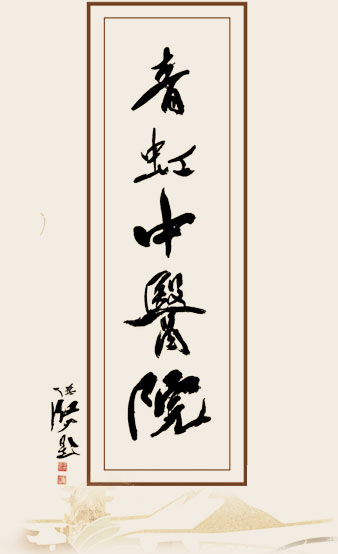 青虹中醫院